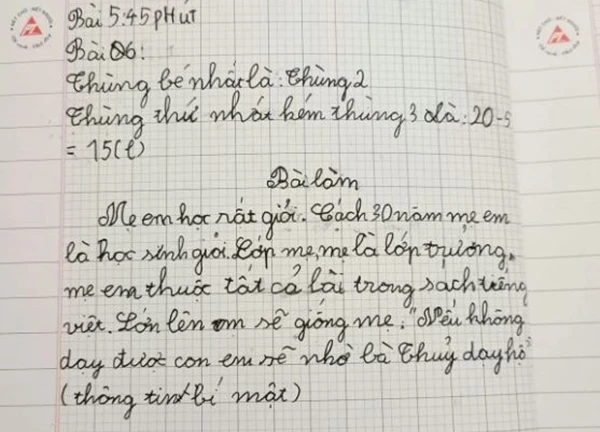 Bài 5:45 pHút
Bài 06:
Thùng bé nhất là: Thùng 2
Thùng thứ nhất kém thùng 3 là: 20-5
= 15(l)
Bài làm
Mẹ em học rất giỏi. Cách 30 năm mẹ em
là học sinh giỏi. Lớp mẹ, mẹ là lớp trưởng.
mẹ em thuộc tất cả bài trong sách tiếng
việt. Lớn lên em sẽ giống mẹ. "Nếu không
dạy được con em sẽ nhờ bà Thuỷ dạy hộ"
(thông tin bí mật)